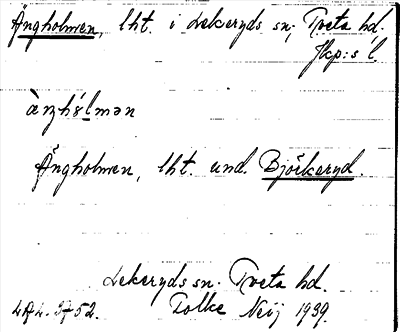 Ängholmen, lht. i Lekeryds sn, Tveta hd.
Jkp:s l.
àŋhólmən
Ängholmen, lht. und. Björkeryd.
Lekeryds sn. Tveta hd.
Folke Neij 1939.